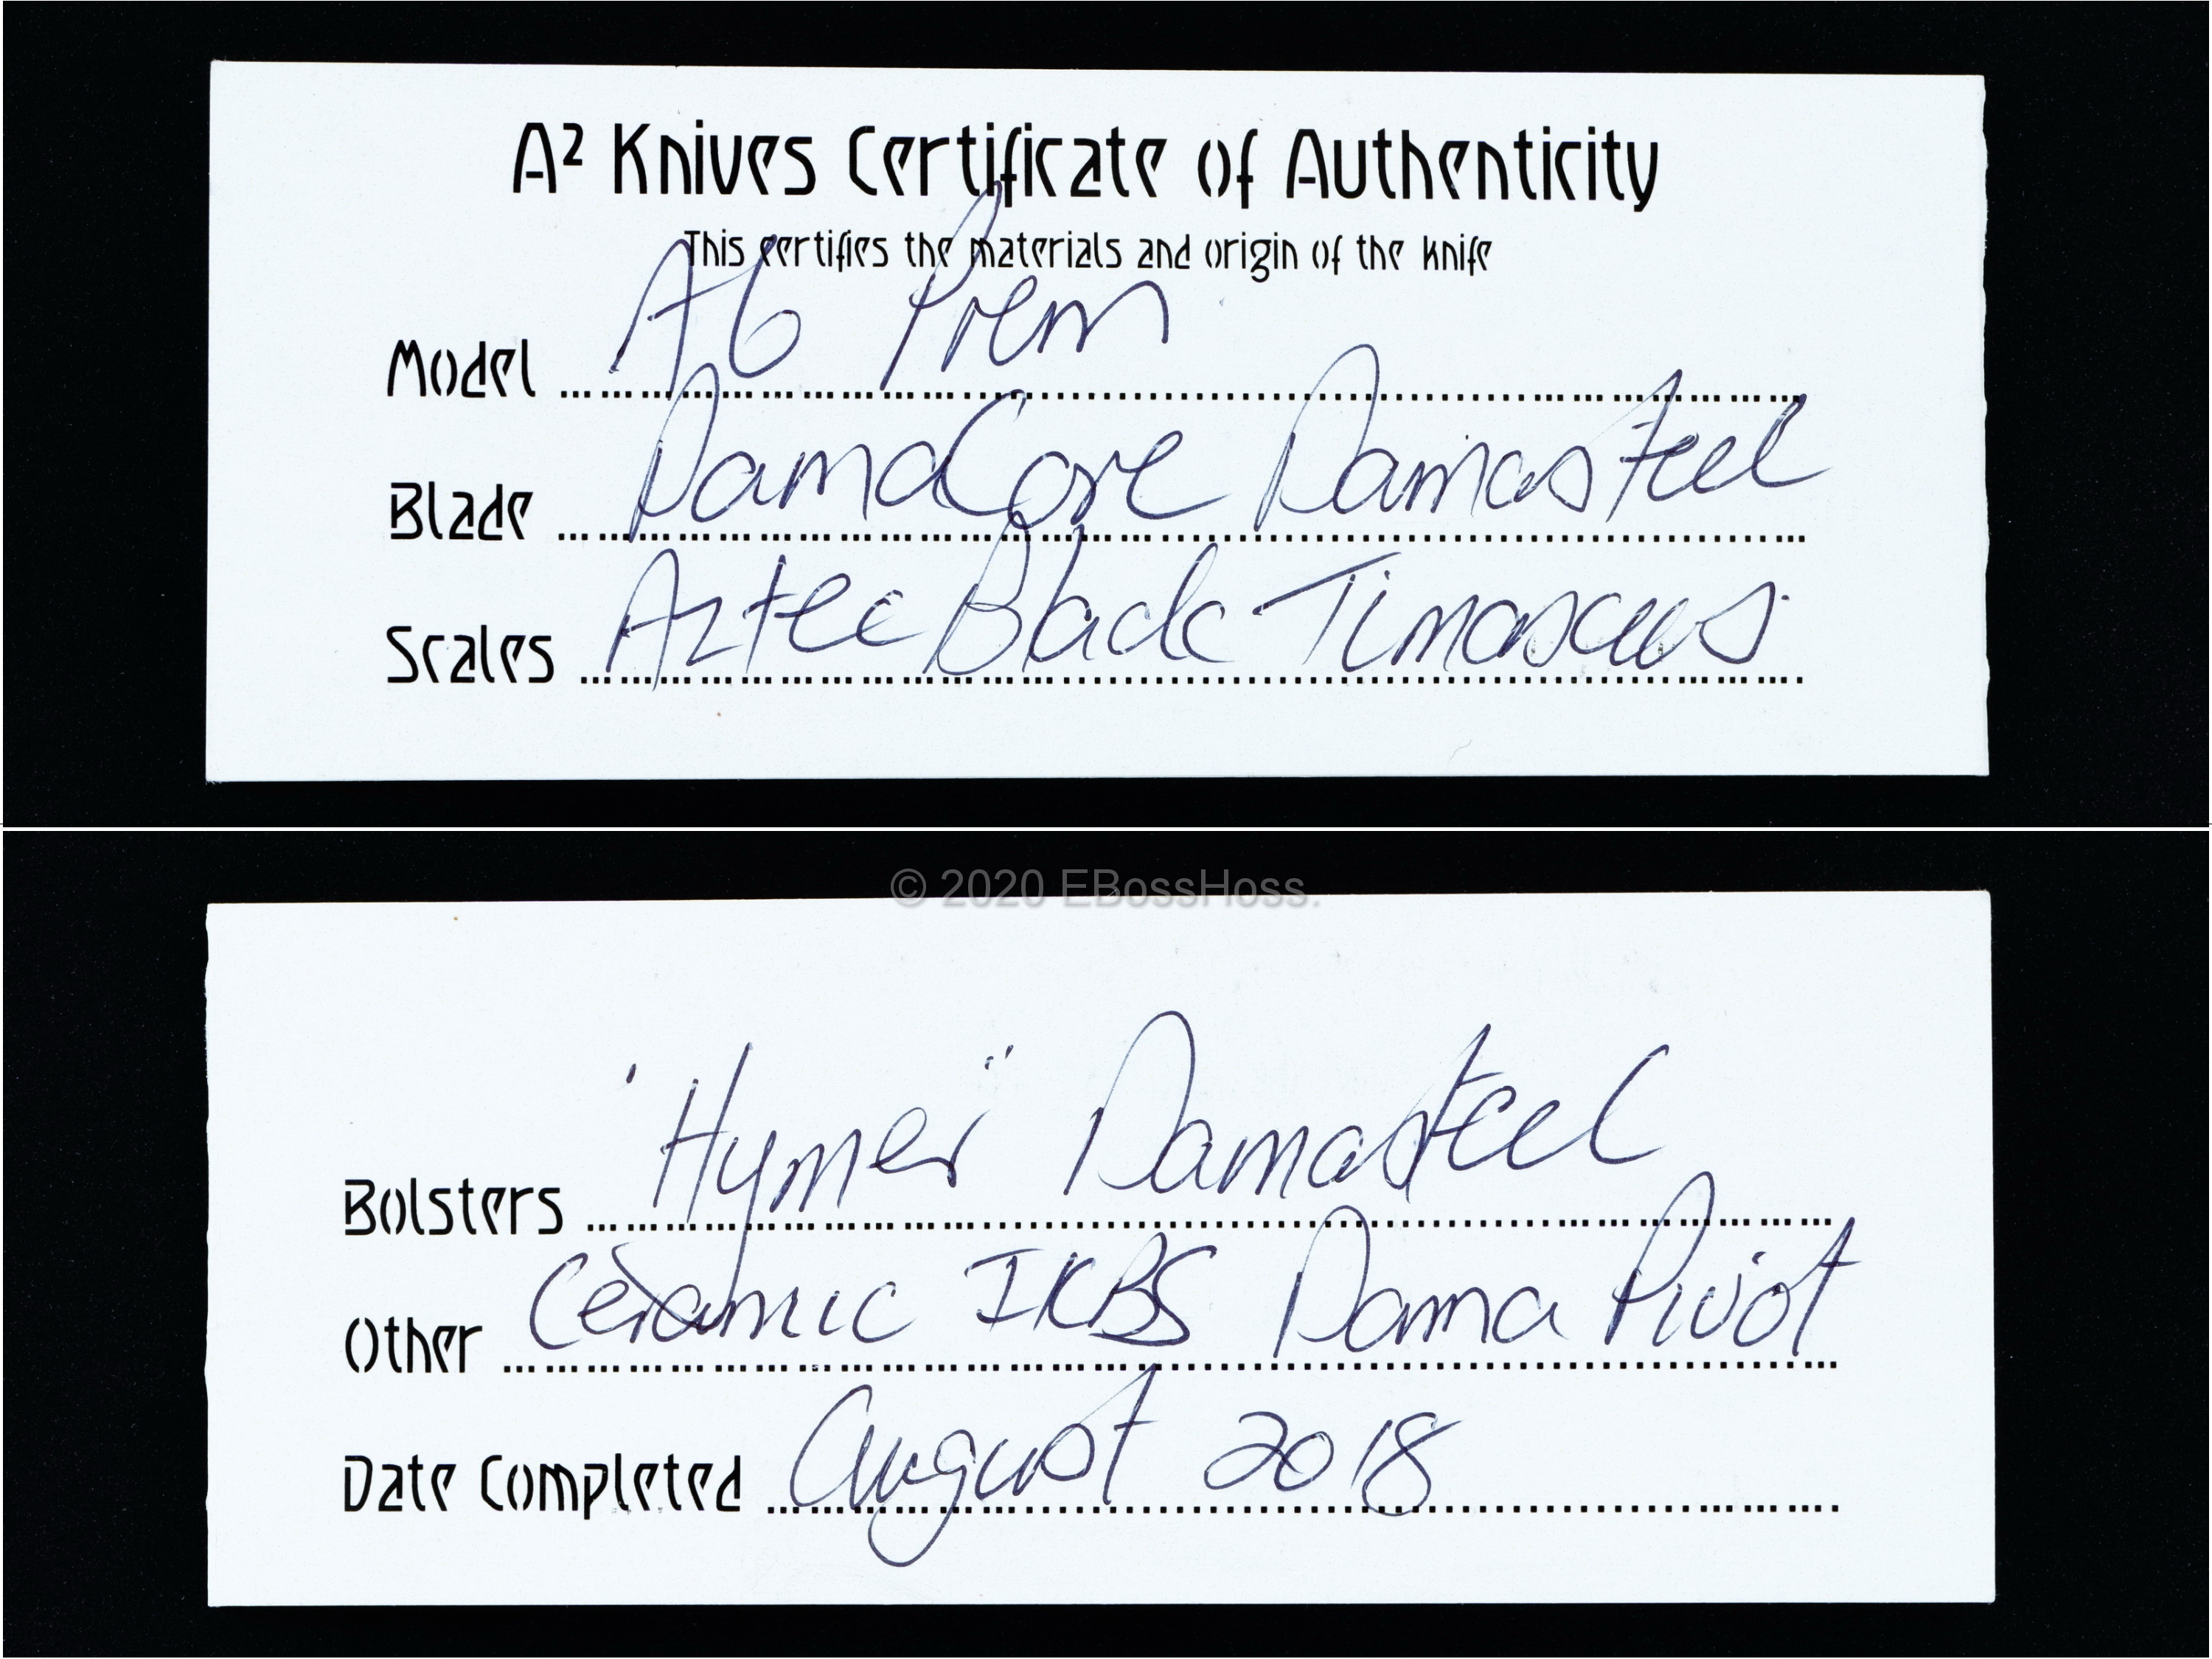 A² Knives Certificate of Authenticity
This certifies the materials and origin of the knife
Model A6 Prem
Blade DamaCore Damasteel
Scales Aztec Black Timascus
© 2020 EBossHoss.
Bolsters "Hymer" Damasteel
Other Ceramic IKBS Dama Pivot
Date Completed August 2018